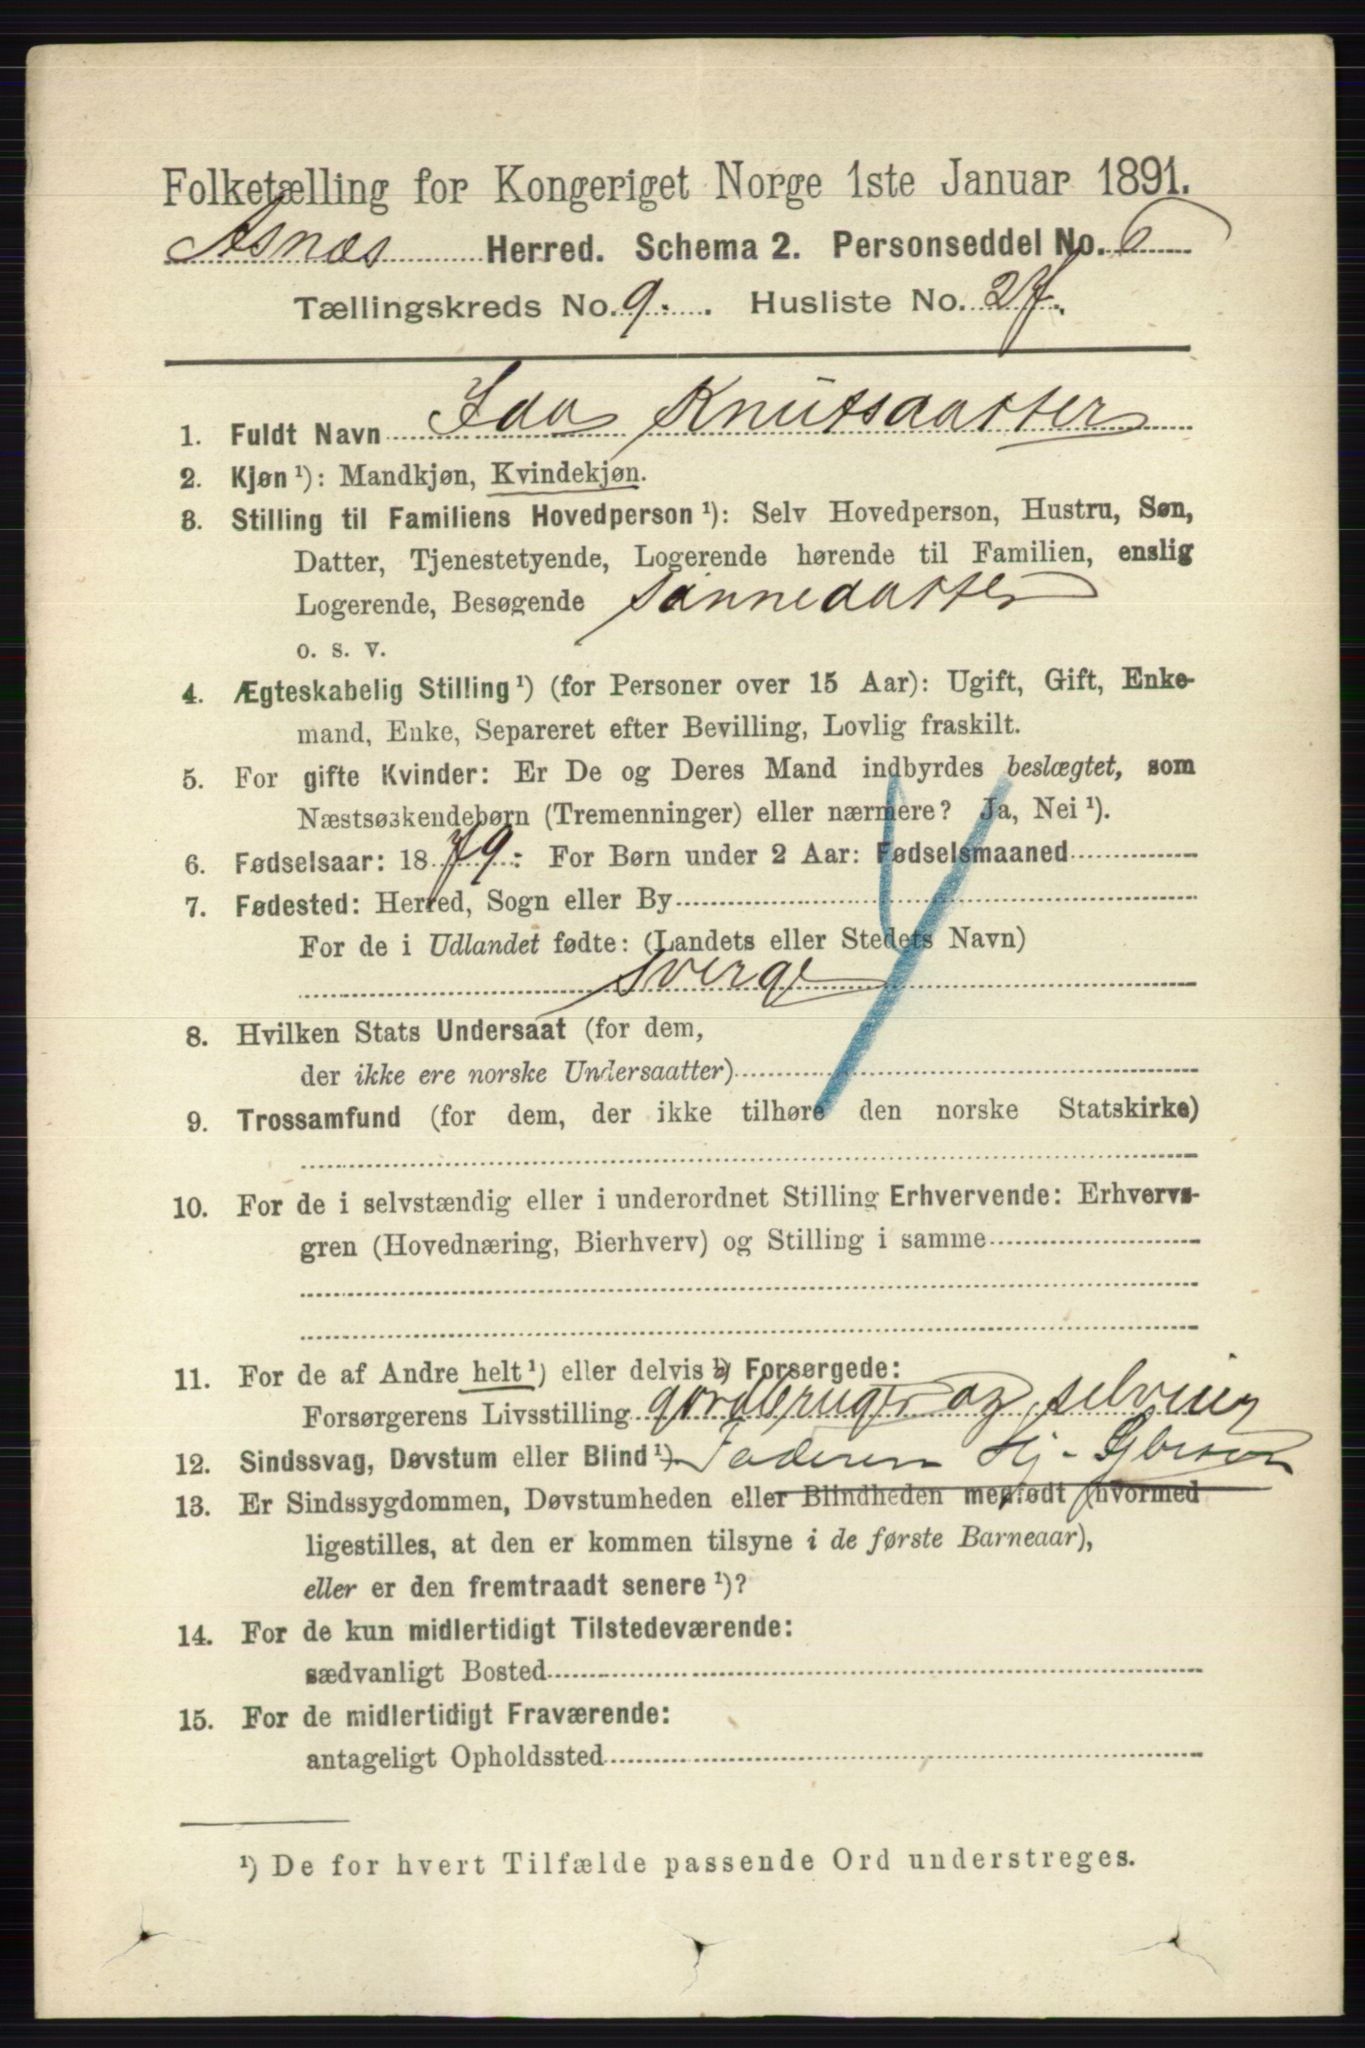 Folketælling for Kongeriget Norge 1ste Januar 1891.
Asnæs Herred. Schema 2. Personseddel No. 6
Tællingskreds No. 9. Husliste No. 27.
1. Fuldt Navn Ida Knutsdatter
2. Kjøn ¹): Mandkjøn, Kvindekjøn.
3. Stilling til Familiens Hovedperson ¹): Selv Hovedperson, Hustru, Søn,
Datter, Tjenestetyende, Logerende hørende til Familien, enslig
Logerende, Besøgende sønnedatter
o. s. v.
4. Ægteskabelig Stilling ¹) (for Personer over 15 Aar): Ugift, Gift, Enke-
mand, Enke, Separeret efter Bevilling, Lovlig fraskilt.
5. For gifte Kvinder: Er De og Deres Mand indbyrdes beslægtet, som
Næstsøskendebørn (Tremenninger) eller nærmere? Ja, Nei ¹).
6. Fødselsaar: 1879. For Børn under 2 Aar: Fødselsmaaned
7. Fødested: Herred, Sogn eller By
For de i Udlandet fødte: (Landets eller Stedets Navn)
Sverge
8. Hvilken Stats Undersaat (for dem,
der ikke ere norske Undersaatter)
9. Trossamfund (for dem, der ikke tilhøre den norske Statskirke)
10. For de i selvstændig eller i underordnet Stilling Erhvervende: Erhvervs-
gren (Hovednæring, Bierhverv) og Stilling i samme
11. For de af Andre helt ¹) eller delvis ¹) Forsørgede:
Forsørgerens Livsstilling gordbruger og selveier
12. Sindssvag, Døvstum eller Blind ¹) Faderen
13. Er Sindssygdommen, Døvstumheden eller Blindheden medfødt (hvormed
ligestilles, at den er kommen tilsyne i de første Barneaar),
eller er den fremtraadt senere ¹)?
14. For de kun midlertidigt Tilstedeværende:
sædvanligt Bosted
15. For de midlertidigt Fraværende:
antageligt Opholdssted
¹) De for hvert Tilfælde passende Ord understreges.